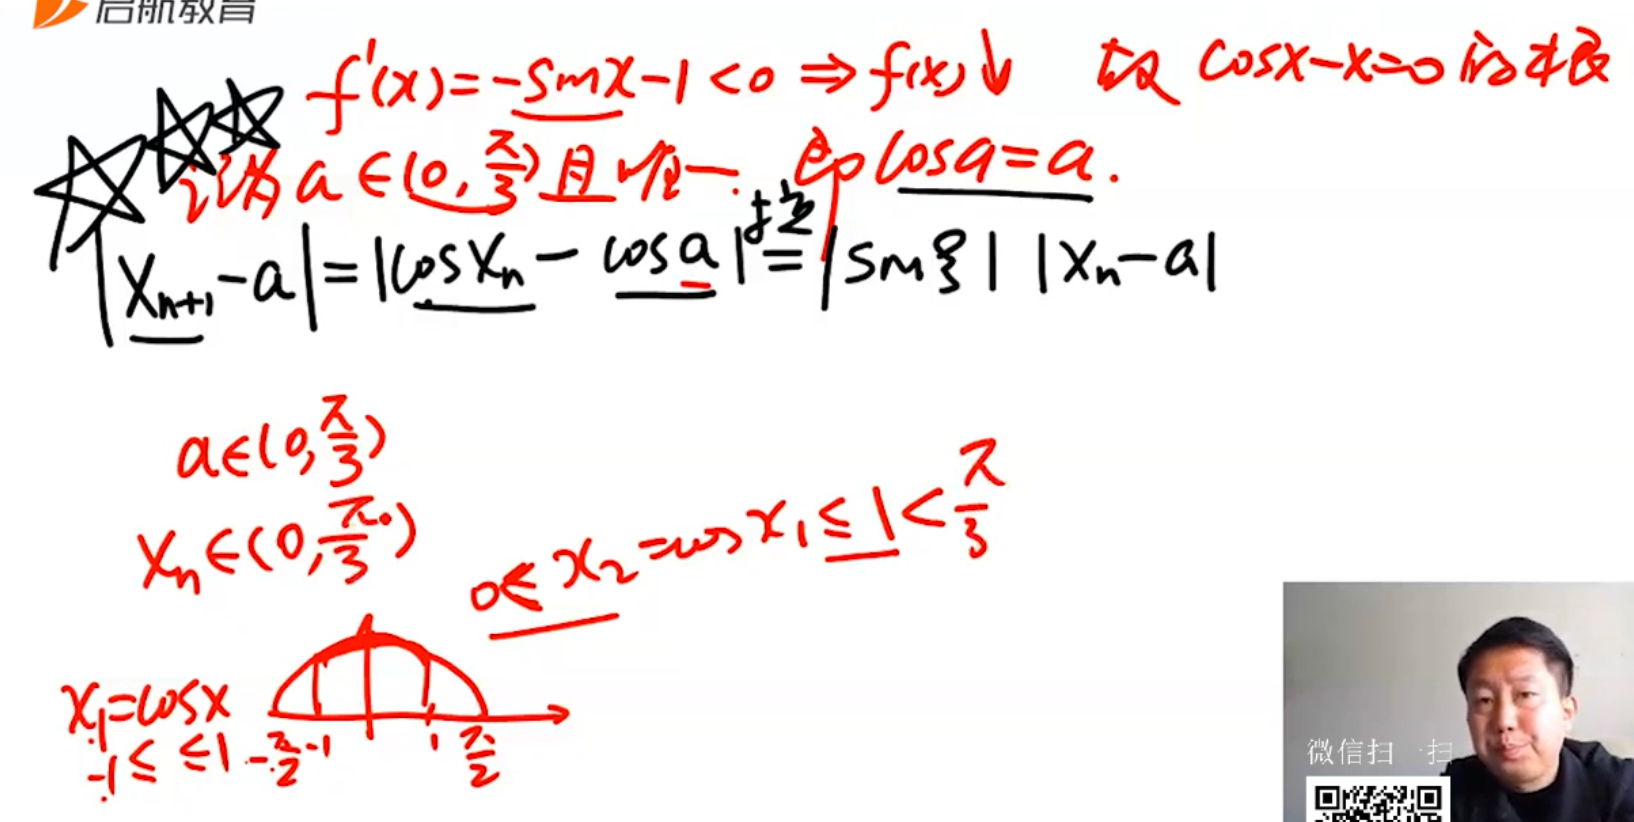 启航教育
f'(x)=-sinx-1<0⇒f(x)↓ 故 cosx-x=0的根
记为a∈(0,π/3)且唯一. 即cosa=a.
|Xn+1-a|=|cosXn-cosa|拉=|sinξ||Xn-a|
a∈(0,π/3)
Xn∈(0,π/3)
0≤x2=cosx1≤1<π/3
x1=cosx
-1≤ ≤1
-π/2 -1 1 π/2
微信扫一扫